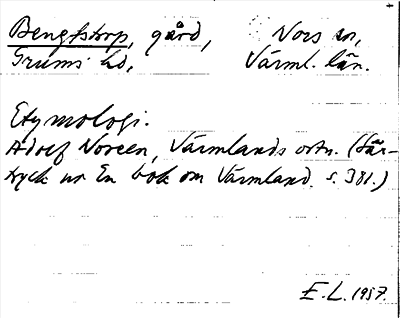 Bengtstorp, gård, Nors sn,
Grums hd, Värml. län.
Etymologi.
Adolf Noreen, Värmlands ortn. (Sär-
tryck ur En bok om Värmland. s. 381.)
E.L. 1957.